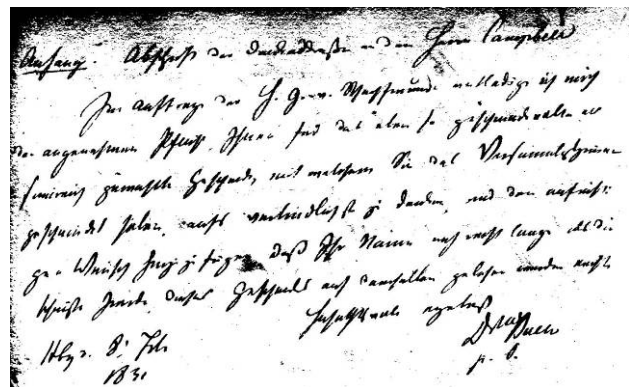 Anhang. Abschrift der Dankaddresse an den Herrn Campbell
Im Auftrage der H. Gew. entledige ich mich
der angenehmen Pflicht Ihnen für das eben so geschmackvolle als
sinnreich gewählte Geschenk, mit welchem Sie das Versammlungszimmer
geschmückt haben, aufs verbindlichste zu danken, und den aufrichti-
gen Wunsch hinzuzufügen, daß Ihr Name noch recht lange als die
Zierde dieses Geschenks auf demselben gelesen werden möchte
Hochachtungsvoll ergebenst
Hbg d. 8. Feb
1831